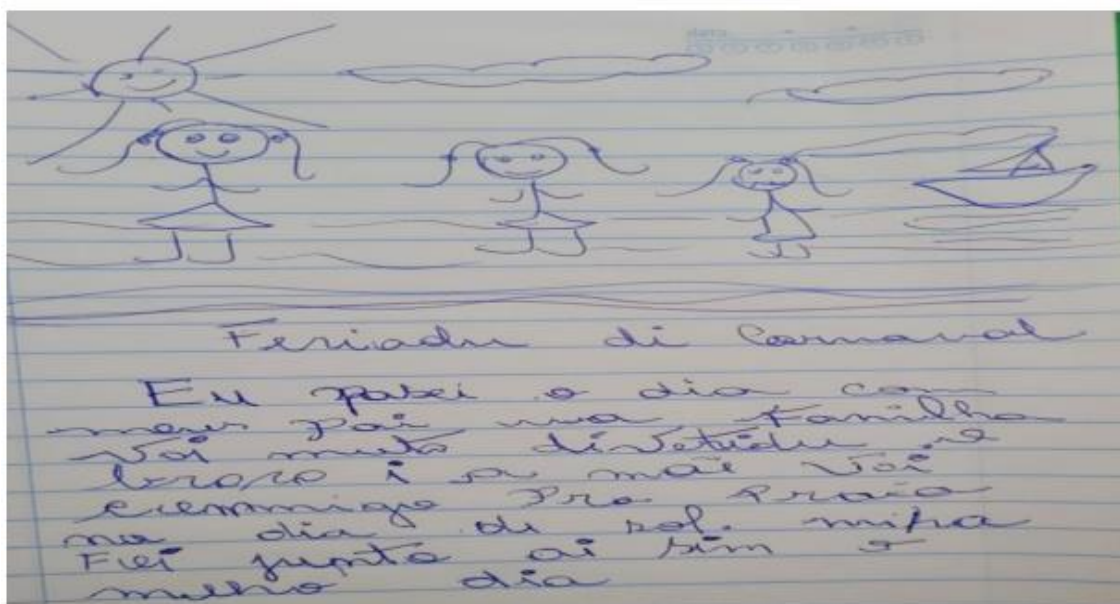 Feriadu di Carnaval
Eu pasei o dia com
meus pai ma familha
Voi muto divetidu e
i a mãe voi
commigo Pra Praia
no dia di sol. mifa
junto ai sim o
melho dia